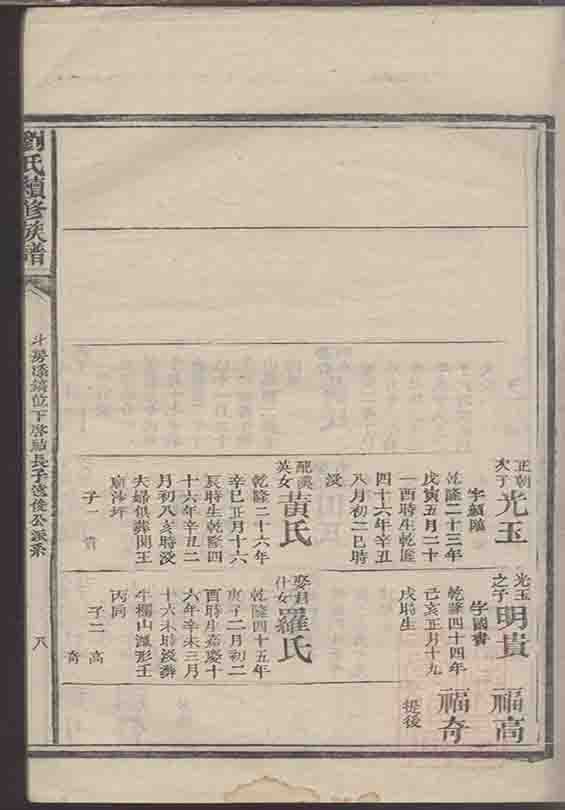 劉氏續修族譜
斗房溪鎬位下啓點長子逺俊公派系
八
正朝
次子
光玉
字縝隨
乾隆二十三年
戊寅五月二十
一酉時生乾隆
四十六年辛丑
八月初二巳時
没
配漢
英女
黄氏
乾隆二十六年
辛巳正月十六
辰時生乾隆四
十六年辛丑二
月初八亥時没
夫婦俱葬関王
廟沙坪
子一
貴
光玉
之子
明貴
字國書
乾隆四十四年
己亥正月十九
戌時生
娶君
什女
羅氏
乾隆四十五年
庚子二月初二
酉時生嘉慶十
六年辛未三月
十六未時没葬
牛欄山瓢形壬
丙向
子二
高
奇
福高
福奇
提後